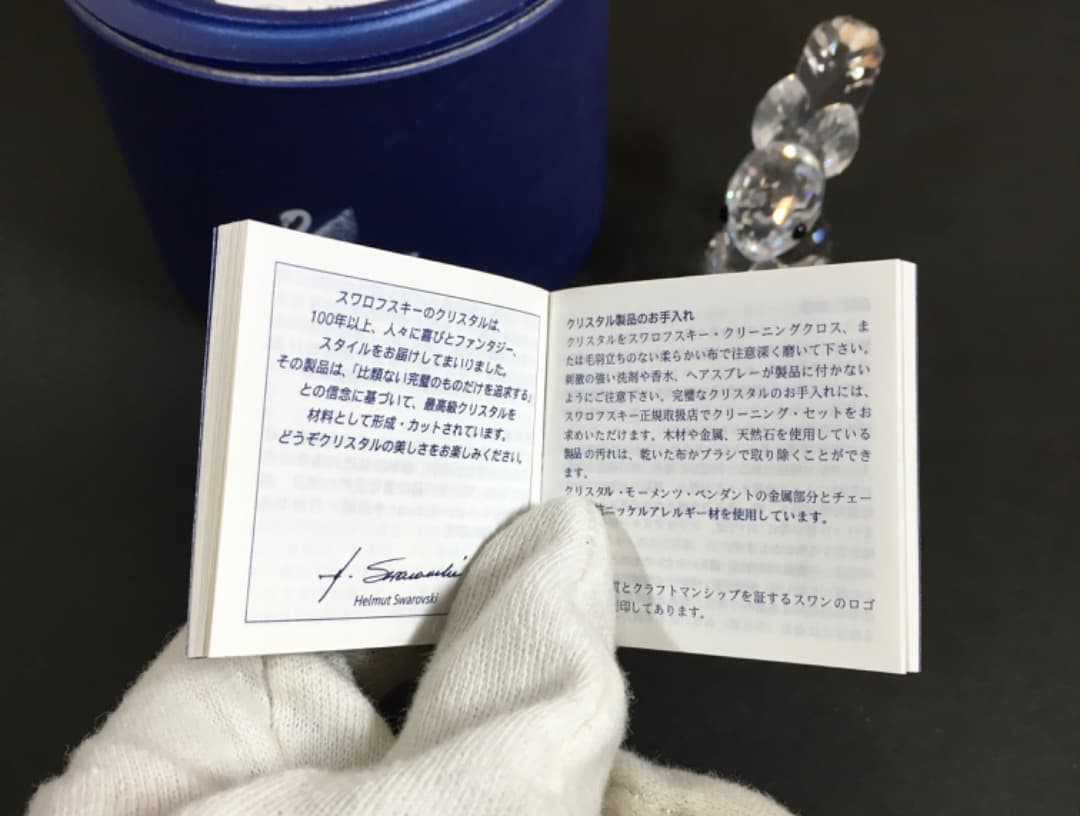 スワロフスキーのクリスタルは、
100年以上、人々に喜びとファンタジー、
スタイルをお届けしてまいりました。
その製品は、「比類ない完璧のものだけを追求する」
との信念に基づいて、最高級クリスタルを
材料として形成・カットされています。
どうぞクリスタルの美しさをお楽しみください。
Helmut Swarovski
クリスタル製品のお手入れ
クリスタルをスワロフスキー・クリーニングクロス、ま
たは毛羽立ちのない柔らかい布で注意深く磨いて下さい。
刺激の強い洗剤や香水、ヘアスプレーが製品に付かない
ようにご注意下さい。完璧なクリスタルのお手入れには、
スワロフスキー正規取扱店でクリーニング・セットをお
求めいただけます。木材や金属、天然石を使用している
製品の汚れは、乾いた布かブラシで取り除くことができ
ます。
クリスタル・モーメンツ・ペンダントの金属部分とチェー
ニッケルアレルギー材を使用しています。
とクラフトマンシップを証するスワンのロゴ
印してあります。